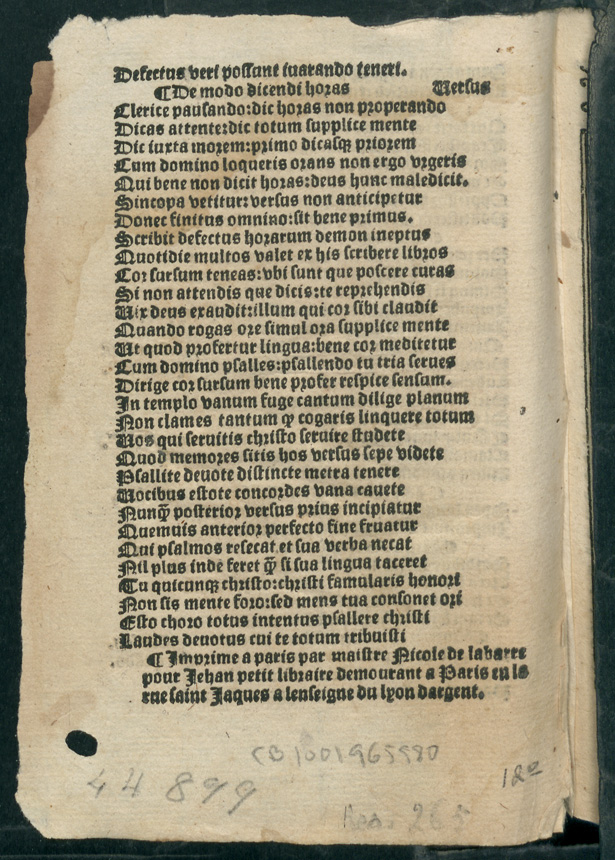 Defectus veri possunt iurando teneri.
¶ De modo dicendi horas Versus
Clerice pausando:dic horas non properando
Dicas attente:dic totum supplice mente
Dic iuxta morem:primo dicasqꝫ priorem
Cum domino loqueris orans non ergo vrgeris
Qui bene non dicit horas:deus hunc maledicit.
Sincopa vetitur:versus non anticipetur
Donec finitus omnino:sit bene primus.
Scribit defectus horarum demon ineptus
Quotidie multos valet ex his scribere libros
Cor sursum teneas:vbi sunt que poscere curas
Si non attendis que dicis:te reprehendis
Vix deus exaudit:illum qui cor sibi claudit
Quando rogas ore simul ora supplice mente
Ut quod profertur lingua:bene cor meditetur
Cum domino psalles:psallendo tu tria serues
Dirige cor sursum bene profer respice sensum.
In templo vanum fuge cantum dilige planum
Non clames tantum ꝙ cogaris linquere totum
Vos qui seruitis christo seruire studete
Quod memores sitis hos versus sepe videte
Psallite deuote distincte metra tenete
Vocibus estote concordes vana cauete
Nunq̃ posterior versus prius incipiatur
Quemuis anterior perfecto fine fruatur
Qui psalmos resecat et sua verba necat
Nil plus inde feret q̃ si sua lingua taceret
Tu quicunqꝫ christo:christi famularis honori
Non sis mente foro:sed mens tua consonet ori
Esto choro totus intentus psallere christi
Laudes deuotus cui te totum tribuisti
¶ Imprime a paris par maistre Nicole de labarre
pour Jehan petit libraire demourant a Paris en la
rue saint Jaques a lenseigne du lyon dargent.
CB1001965580
44 899
Res. 265